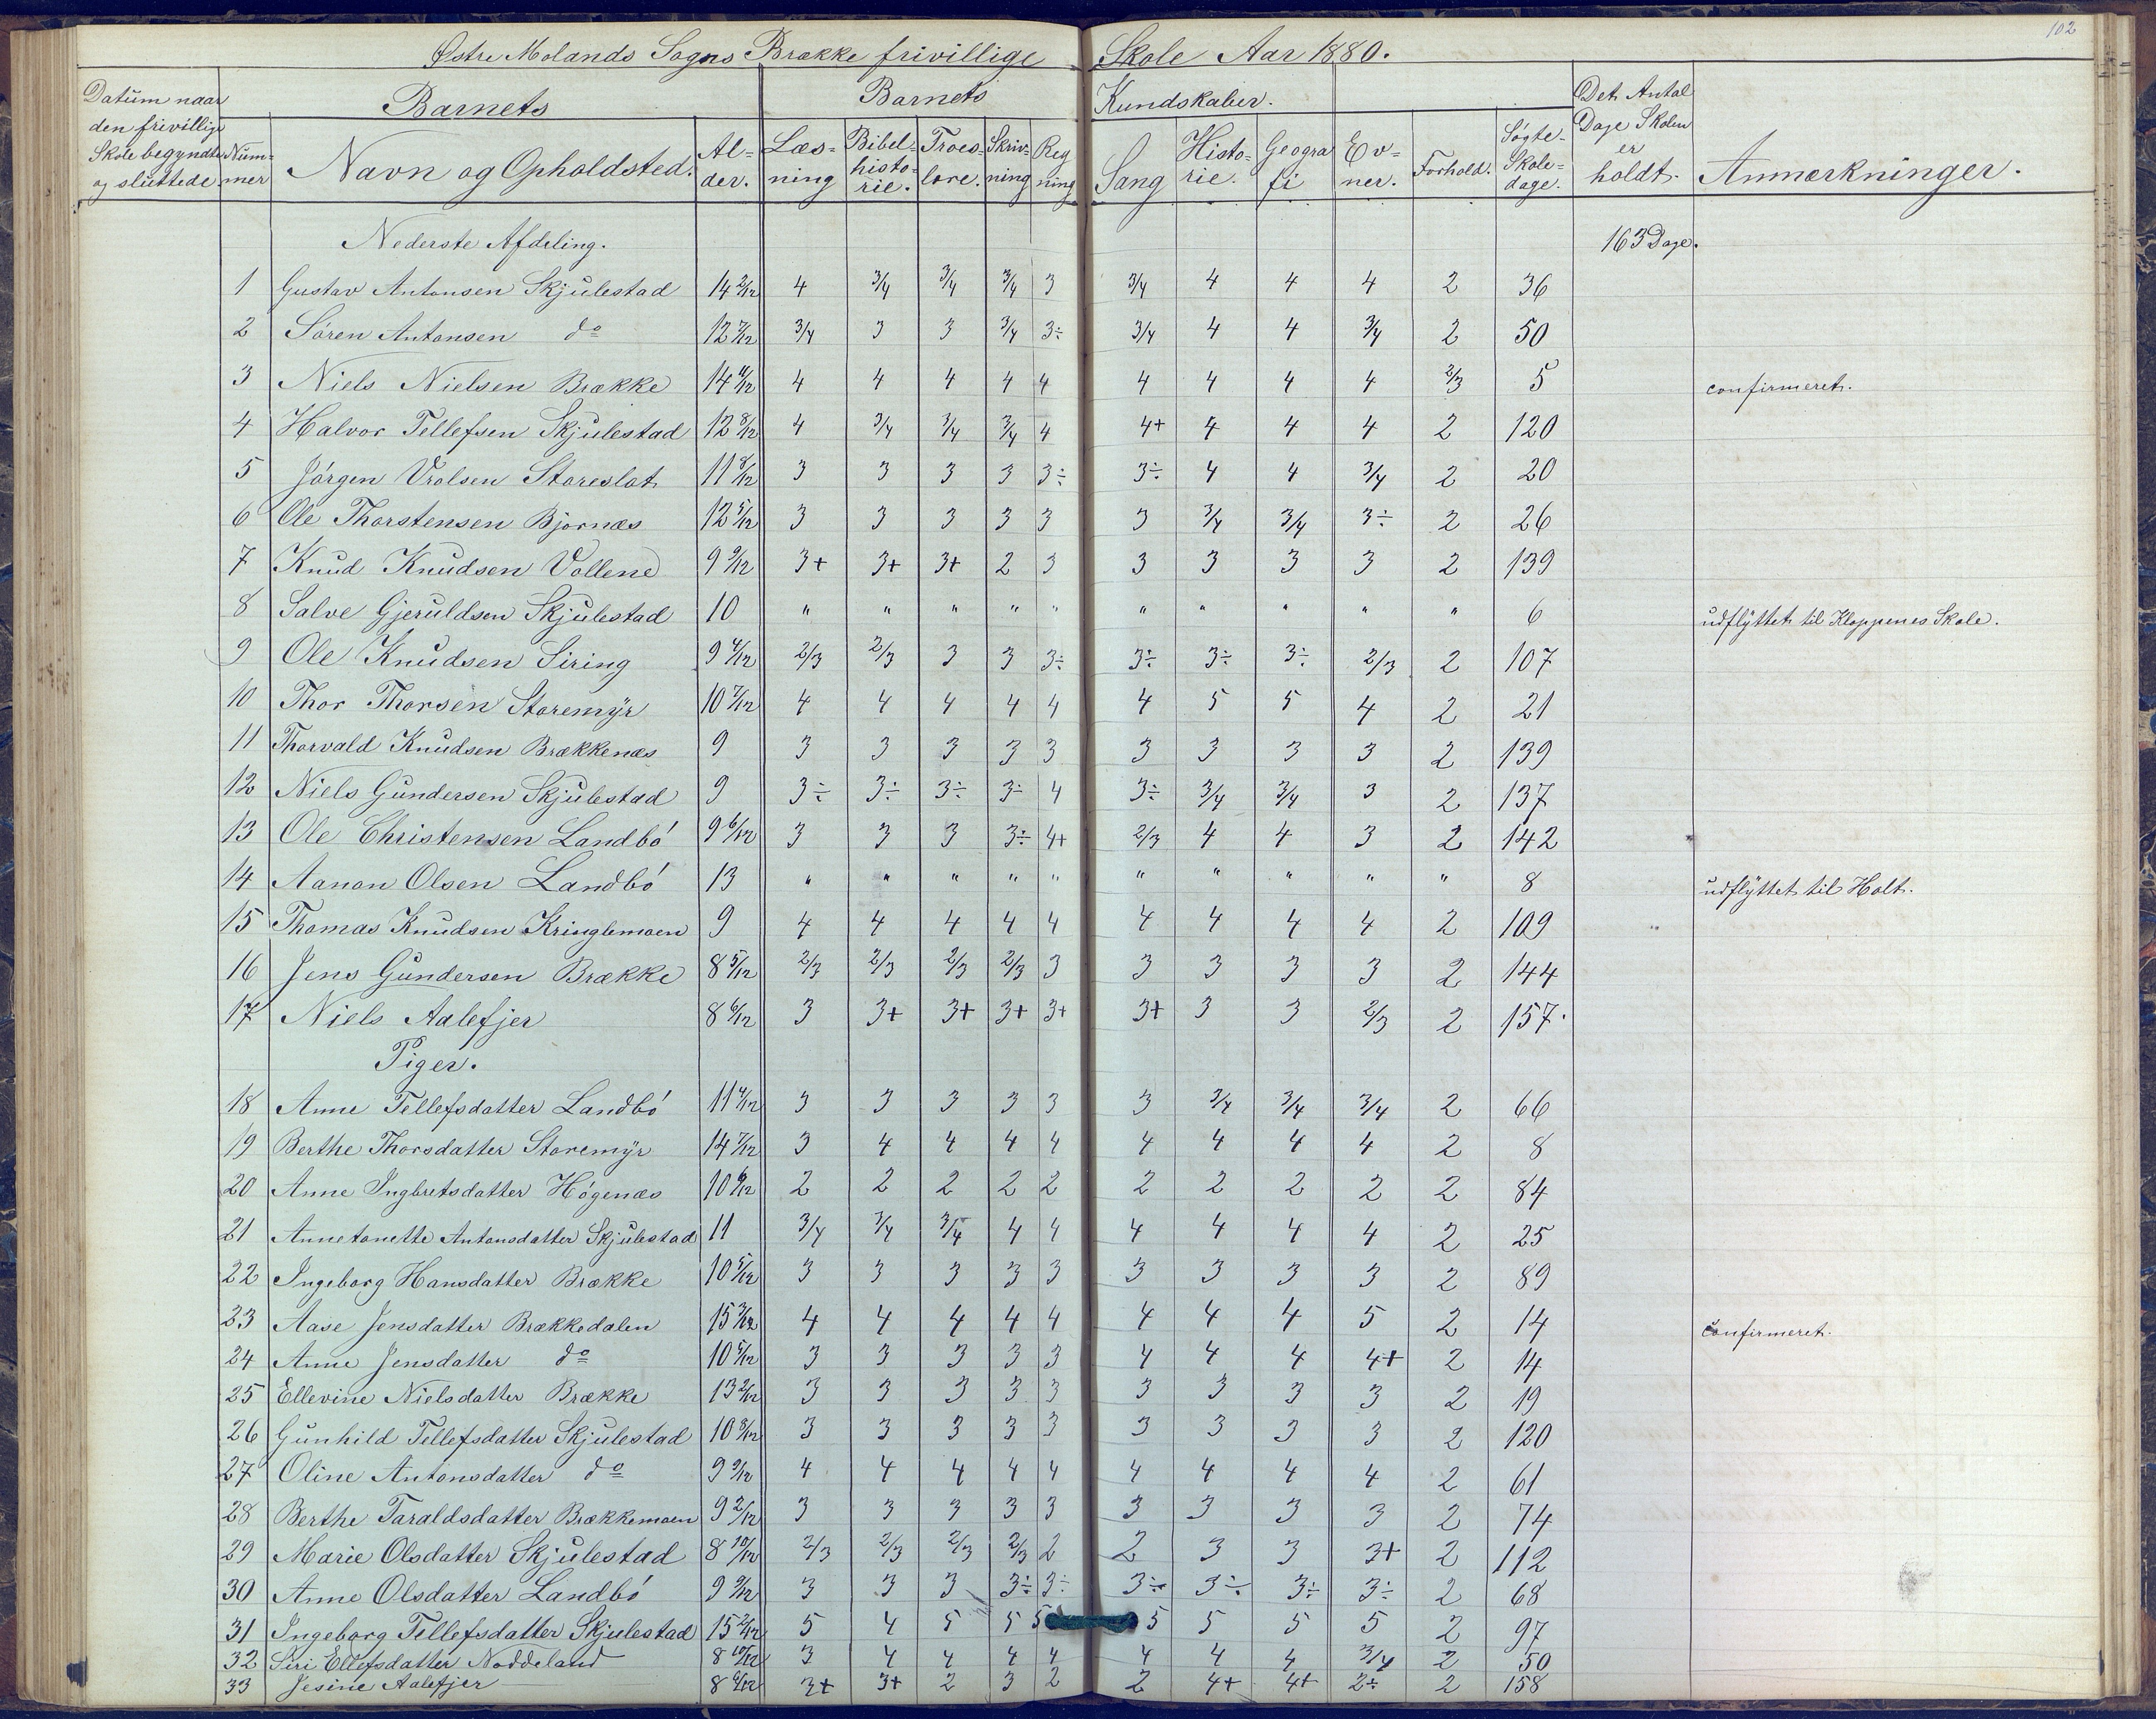 102
Østre Molands Sogns Brække frivillige Skole Aar 1880.
Datum naar den frivillige Skole begyndte og sluttede
Nummer
Barnets
Navn og Opholdsted.
Alder.
Barnets Kundskaber.
Læsning
Bibelhistorie.
Troeslære.
Skrivning
Regning
Sang
Historie.
Geografi
Evner.
Forhold.
Søgte Skoledage.
Det Antal Dage Skolen er holdt.
Anmærkninger.
Nederste Afdeling. 163 Dage.
1 Gustav Antonsen Skjulestad 14 2/12 4 3/4 3/4 3/4 3 3/4 4 4 4 2 36
2 Søren Antonsen do 12 7/12 3/4 3 3 3/4 3÷ 3/4 4 4 3/4 2 50
3 Niels Nielsen Brække 14 11/12 4 4 4 4 4 4 4 4 4 2/3 5 confirmeret.
4 Halvor Tellefsen Skjulestad 12 8/12 4 3/4 3/4 3/4 4 4+ 4 4 4 2 120
5 Jørgen Vrolsen Storeslot 11 8/12 3 3 3 3 3÷ 3÷ 4 4 3/4 2 20
6 Ole Thorstensen Bjornæs 12 5/12 3 3 3 3 3 3 3/4 3/4 3÷ 2 26
7 Knud Knudsen Vollene 9 9/12 3+ 3+ 3+ 2 3 3 3 3 3 2 139
8 Salve Gjeruldsen Skjulestad 10 " " " " " " " " " " 6 udflyttet til Kloppenes Skole.
9 Ole Knudsen Siring 9 4/12 2/3 2/3 3 3 3÷ 3÷ 3÷ 3÷ 2/3 2 107
10 Thor Thorsen Storemyr 10 7/12 4 4 4 4 4 4 5 5 4 2 21
11 Thorvald Knudsen Brækkenæs 9 3 3 3 3 3 3 3 3 3 2 139
12 Niels Gundersen Skjulestad 9 3÷ 3÷ 3÷ 3÷ 4 3÷ 3/4 3/4 3 2 137
13 Ole Christensen Landbø 9 6/12 3 3 3 3÷ 4+ 2/3 4 4 3 2 142
14 Aanon Olsen Landbø 13 " " " " " " " " " " 8 udflyttet til Holt.
15 Thomas Knudsen Kringlemoen 9 4 4 4 4 4 4 4 4 4 2 109
16 Jens Gundersen Brække 8 5/12 2/3 2/3 2/3 2/3 3 3 3 3 3 2 144
17 Niels Aalefjer 8 6/12 3 3+ 3+ 3+ 3+ 3+ 3 3 2/3 2 157.
Piger.
18 Anne Tellefsdatter Landbø 11 4/12 3 3 3 3 3 3 3/4 3/4 3/4 2 66
19 Berthe Thorsdatter Storemyr 14 7/12 3 4 4 4 4 4 4 4 4 2 8
20 Anne Ingbretsdatter Høgenæs 10 6/12 2 2 2 2 2 2 2 2 2 2 84
21 Annetonette Antonsdatter Skjulestad 11 3/4 3/4 3/4 4 4 4 4 4 4 2 25
22 Ingeborg Hansdatter Brække 10 5/12 3 3 3 3 3 3 3 3 3 2 89
23 Aase Jensdatter Brækkedalen 15 3/12 4 4 4 4 4 4 4 4 5 2 14 confirmeret.
24 Anne Jensdatter do 10 5/12 3 3 3 3 3 4 4 4 4+ 2 14
25 Ellevine Nielsdatter Brække 13 2/12 3 3 3 3 3 3 3 3 3 2 19
26 Gunhild Tellefsdatter Skjulestad 10 8/12 3 3 3 3 3 3 3 3 3 2 120
27 Oline Antonsdatter do 9 9/12 4 4 4 4 4 4 4 4 4 2 61
28 Berthe Taraldsdatter Brækkemoen 9 2/12 3 3 3 3 3 3 3 3 3 2 74
29 Marie Olsdatter Skjulestad 8 10/12 2/3 2/3 2/3 2/3 2 2 3 3 3+ 2 112
30 Anne Olsdatter Landbø 9 9/12 3 3 3 3÷ 3÷ 3÷ 3÷ 3÷ 3÷ 2 68
31 Ingeborg Tellefsdatter Skjulestad 15 2/12 5 4 5 5 5 5 5 5 5 2 97
32 Siri Ellefsdatter Noddeland 8 10/12 3 4 4 4 4 4 4 4 3/4 2 50
33 Jesine Aalefjer 8 6/12 3+ 3+ 2 3 2 2 4+ 4+ 2÷ 2 158